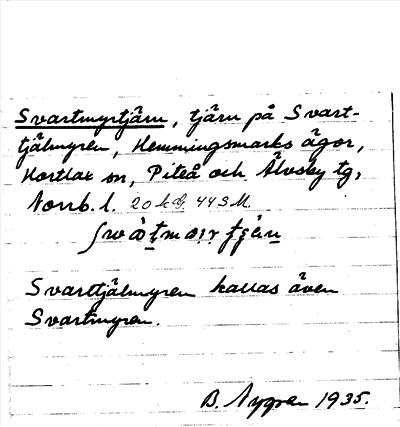 Svartmyrtjärn, tjärn på Svart-
tjälmyren, Hemmingsmarks ägor,
Hortlax sn, Piteå och Älvsby tg,
Norrb. l. 20 k G. 443 M.
Svarttjälmyren kallas även
Svartmyren.
B. Nygren 1935.